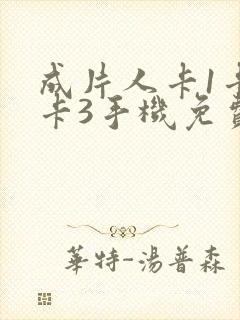 成片人卡1卡
卡3手機免費
華特-湯普森